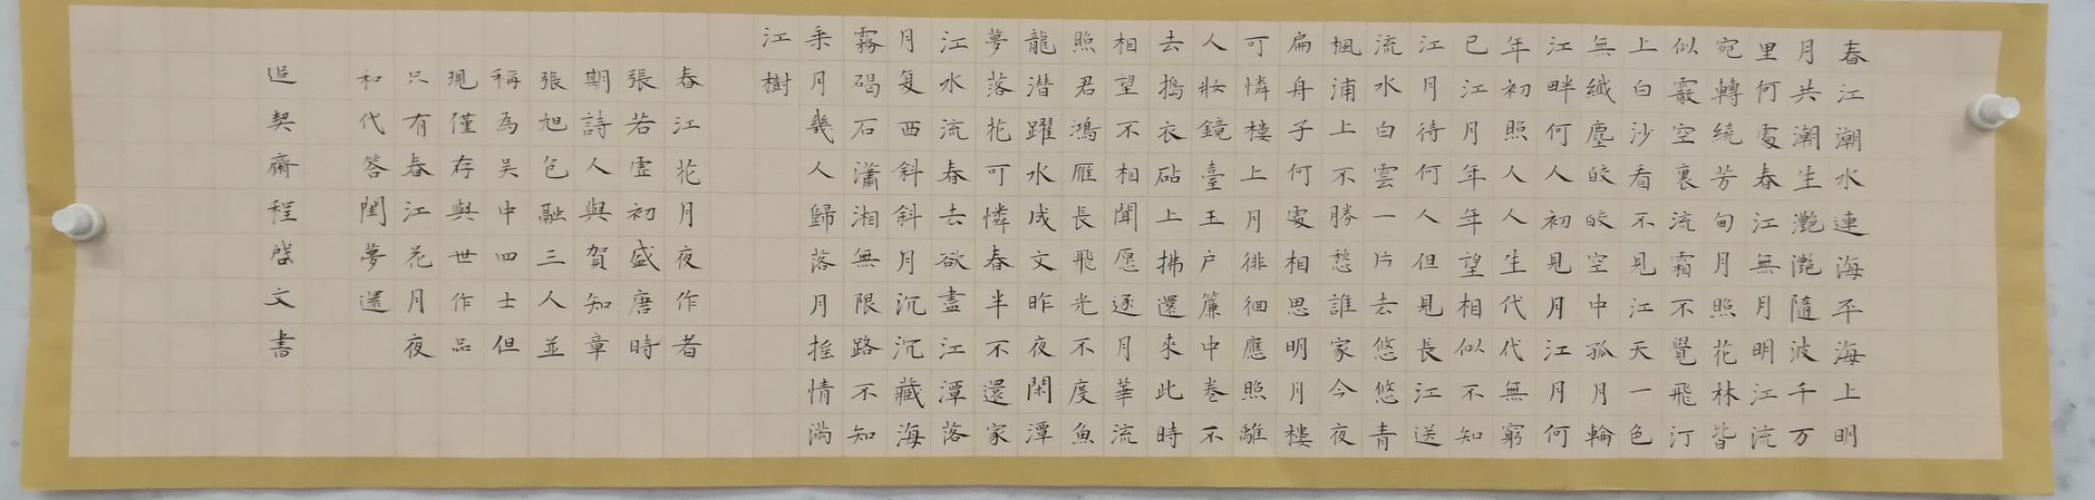 春江潮水連海平海上明
月共潮生灧灧隨波千万
里何處春江無月明江流
宛轉繞芳甸月照花林皆
似霰空裏流霜不覺飛汀
上白沙看不見江天一色
無纖塵皎皎空中孤月輪
江畔何人初見月江月何
年初照人人生代代無窮
已江月年年望相似不知
江月待何人但見長江送
流水白雲一片去悠悠青
楓浦上不勝愁誰家今夜
扁舟子何處相思明月樓
可憐樓上月徘徊應照離
人妝鏡臺玉户簾中卷不
去搗衣砧上拂還來此時
相望不相聞愿逐月華流
照君鴻雁長飛光不度魚
龍潛躍水成文昨夜閑潭
夢落花可憐春半不還家
江水流春去欲盡江潭落
月复西斜斜月沉沉藏海
霧碣石瀟湘無限路不知
乘月幾人歸落月摇情满
江樹
春江花月夜作者
張若虚初盛唐時
期詩人與賀知章
張旭包融三人並
稱為吴中四士但
現僅存與世作品
只有春江花月夜
和代答閨夢還
追契齋程啓文書